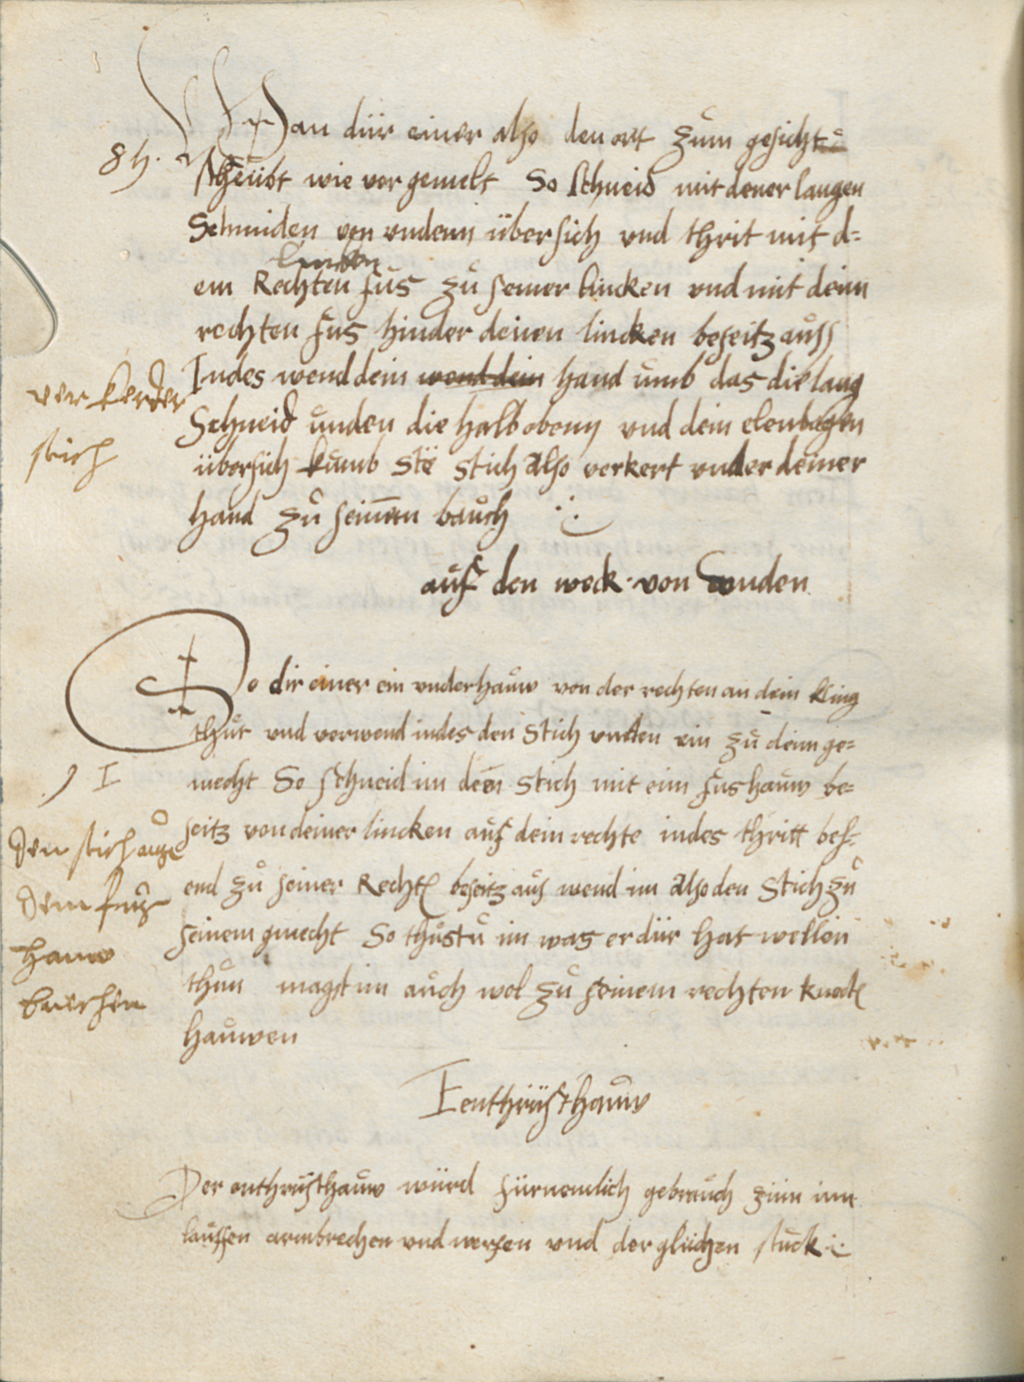 Wan dür einer also den ort zům gesicht
8h.
scheübt wie vor gemelt So schneid mit dener langen
Schniden von undenn übersich und thrit mit d=
lincken
em Rechten fůs zů seiner lincken und mit deim
rechten fus hinder deinen lincken beseitz auss
Indes wend dein wend dein hand umb das die lang
verkerter
Schneid unden die halb obenn und dein elenbogen
stich
übersich kumb Stë stich also verkert under deiner
hand zů seinem bauch
auf den weck von unden
So dir einer ein underhauw von der rechten an dein kling
thůt und verwend indes den stich unden ein zů deim ge=
9 I
mecht So schneid im den stich mit eim fushauw be=
den stich aus
seitz von deiner lincken auf dein rechte indes thritt bes=
dem fus
end zů seiner Recht beseitz aus wend im also den Stich zů
hauw
seinem gmecht So thůstů im was er dür hat wellen
brechen
thůn magst im auch wol zů seinem rechten knoch
hauwen
I enthrüsthauw
Der enthrusthauw würd fürnemlich gebrauch zům inn
lauffen armbrechen und werfen und der glichen stuck